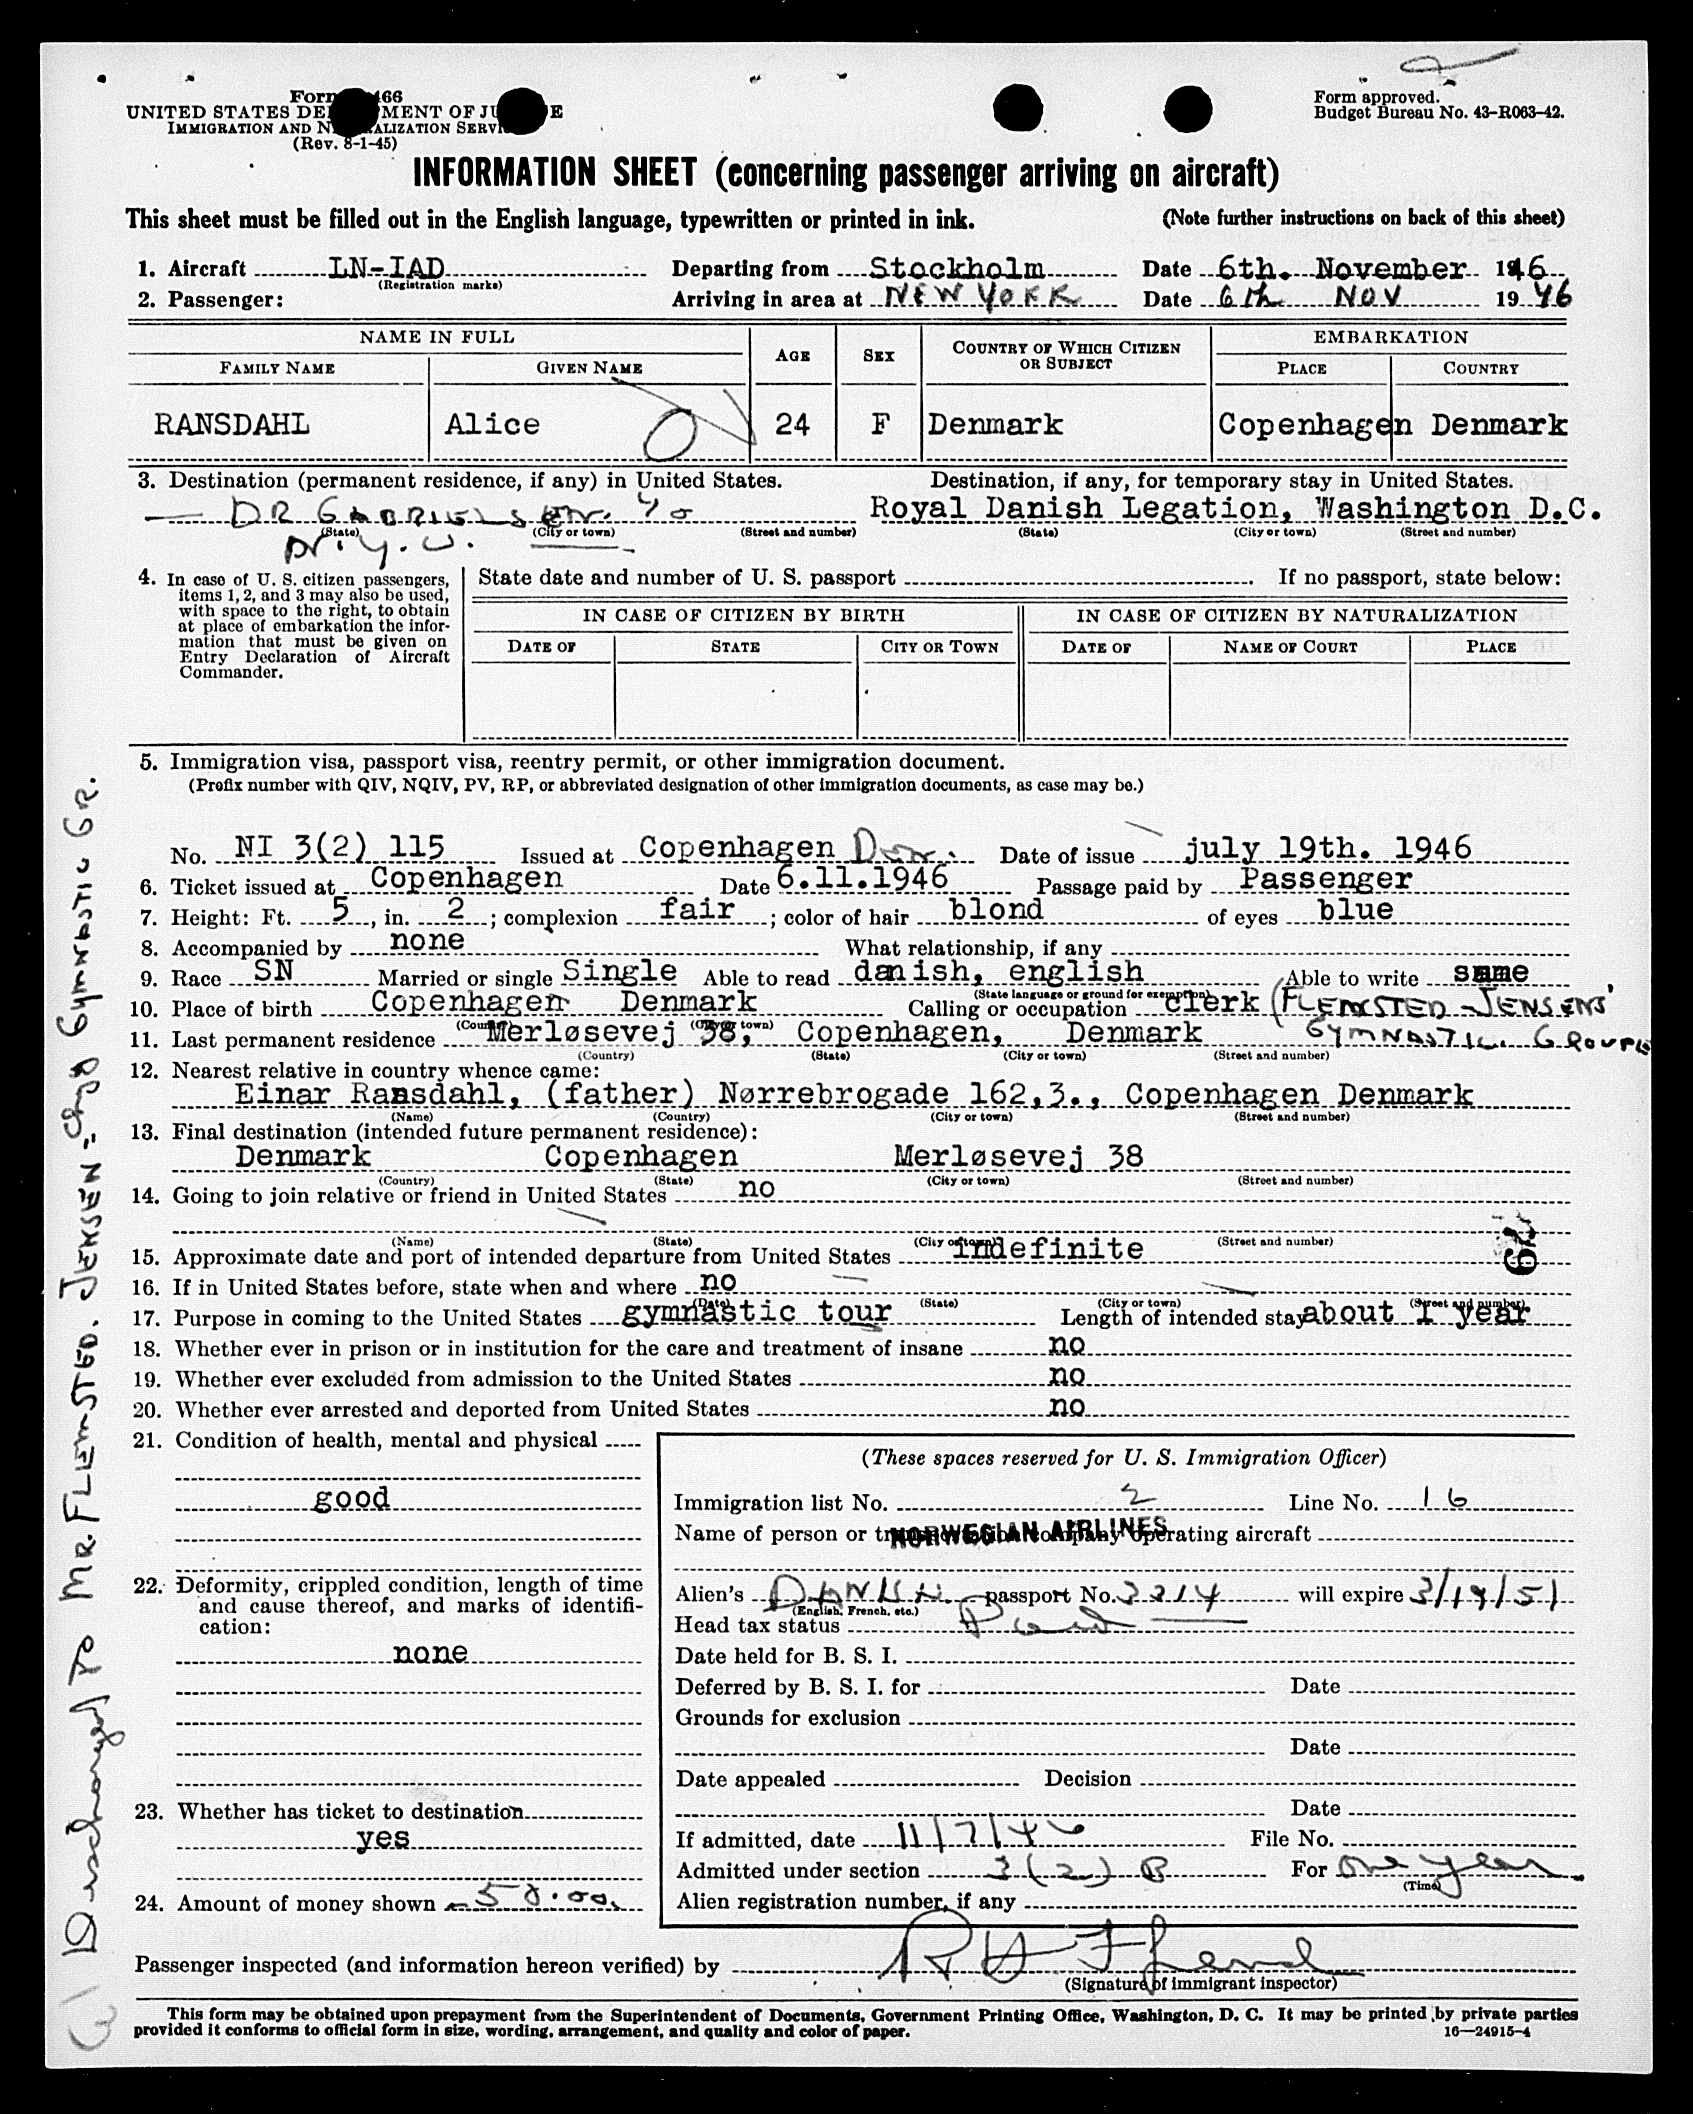 Form 466
UNITED STATES DEPARTMENT OF JUSTICE
IMMIGRATION AND NATURALIZATION SERVICE
(Rev. 8-1-45)
Form approved.
Budget Bureau No. 43-R063-42.
INFORMATION SHEET (concerning passenger arriving on aircraft)
This sheet must be filled out in the English language, typewritten or printed in ink. (Note further instructions on back of this sheet)
1. Aircraft LN-IAD Departing from Stockholm Date 6th. November 1946
(Registration marks)
2. Passenger: Arriving in area at NEW YORK Date 6th NOV 1946
NAME IN FULL AGE SEX COUNTRY OF WHICH CITIZEN OR SUBJECT EMBARKATION
FAMILY NAME GIVEN NAME PLACE COUNTRY
RANSDAHL Alice 24 F Denmark Copenhagen Denmark
3. Destination (permanent residence, if any) in United States. Destination, if any, for temporary stay in United States.
DR GABRIELSEN. Royal Danish Legation, Washington D.C.
(State) (City or town) (Street and number) (State) (City or town) (Street and number)
N.Y.
4. In case of U. S. citizen passengers, items 1, 2, and 3 may also be used, with space to the right, to obtain at place of embarkation the information that must be given on Entry Declaration of Aircraft Commander.
State date and number of U. S. passport . If no passport, state below:
IN CASE OF CITIZEN BY BIRTH IN CASE OF CITIZEN BY NATURALIZATION
DATE OF STATE CITY OR TOWN DATE OF NAME OF COURT PLACE
5. Immigration visa, passport visa, reentry permit, or other immigration document.
(Prefix number with QIV, NQIV, PV, RP, or abbreviated designation of other immigration documents, as case may be.)
No. NI 3(2) 115 Issued at Copenhagen Den. Date of issue july 19th. 1946
6. Ticket issued at Copenhagen Date 6.11.1946 Passage paid by Passenger
7. Height: Ft. 5, in. 2; complexion fair; color of hair blond of eyes blue
8. Accompanied by none What relationship, if any
9. Race SN Married or single Single Able to read danish, english Able to write same
(State language or ground for exemption)
10. Place of birth Copenhagen Denmark Calling or occupation clerk (FLEMSTED-JENSENS'
(Country) (City or town)
11. Last permanent residence Merløsevej 38, Copenhagen, Denmark GYMNASTIC GROUP
(Country) (State) (City or town) (Street and number)
12. Nearest relative in country whence came:
Einar Ransdahl, (father) Nørrebrogade 162,3., Copenhagen Denmark
(Name) (Country) (City or town) (Street and number)
13. Final destination (intended future permanent residence):
Denmark Copenhagen Merløsevej 38
(Country) (State) (City or town) (Street and number)
14. Going to join relative or friend in United States no
(Name) (State) (City or town) (Street and number)
15. Approximate date and port of intended departure from United States indefinite
16. If in United States before, state when and where no
(Date) (State) (City or town) (Street and number)
17. Purpose in coming to the United States gymnastic tour Length of intended stay about 1 year
18. Whether ever in prison or in institution for the care and treatment of insane no
19. Whether ever excluded from admission to the United States no
20. Whether ever arrested and deported from United States no
21. Condition of health, mental and physical
good
22. Deformity, crippled condition, length of time and cause thereof, and marks of identification:
none
23. Whether has ticket to destination
yes
24. Amount of money shown 50.00
(These spaces reserved for U. S. Immigration Officer)
Immigration list No. 2 Line No. 16
Name of person or transportation company operating aircraft
NORWEGIAN AIRLINES
Alien's DANISH passport No. 2214 will expire 3/19/51
(English, French, etc.)
Head tax status Paid
Date held for B. S. I.
Deferred by B. S. I. for Date
Grounds for exclusion
Date
Date appealed Decision
Date
If admitted, date 11/7/46 File No.
Admitted under section 3(2) B For One year
(Time)
Alien registration number, if any
Passenger inspected (and information hereon verified) by
(Signature of immigrant inspector)
This form may be obtained upon prepayment from the Superintendent of Documents, Government Printing Office, Washington, D. C. It may be printed by private parties
provided it conforms to official form in size, wording, arrangement, and quality and color of paper. 16—24915-4
Discharged TO MR. FLEMSTED. JENSEN - GYMNASTIC GR.